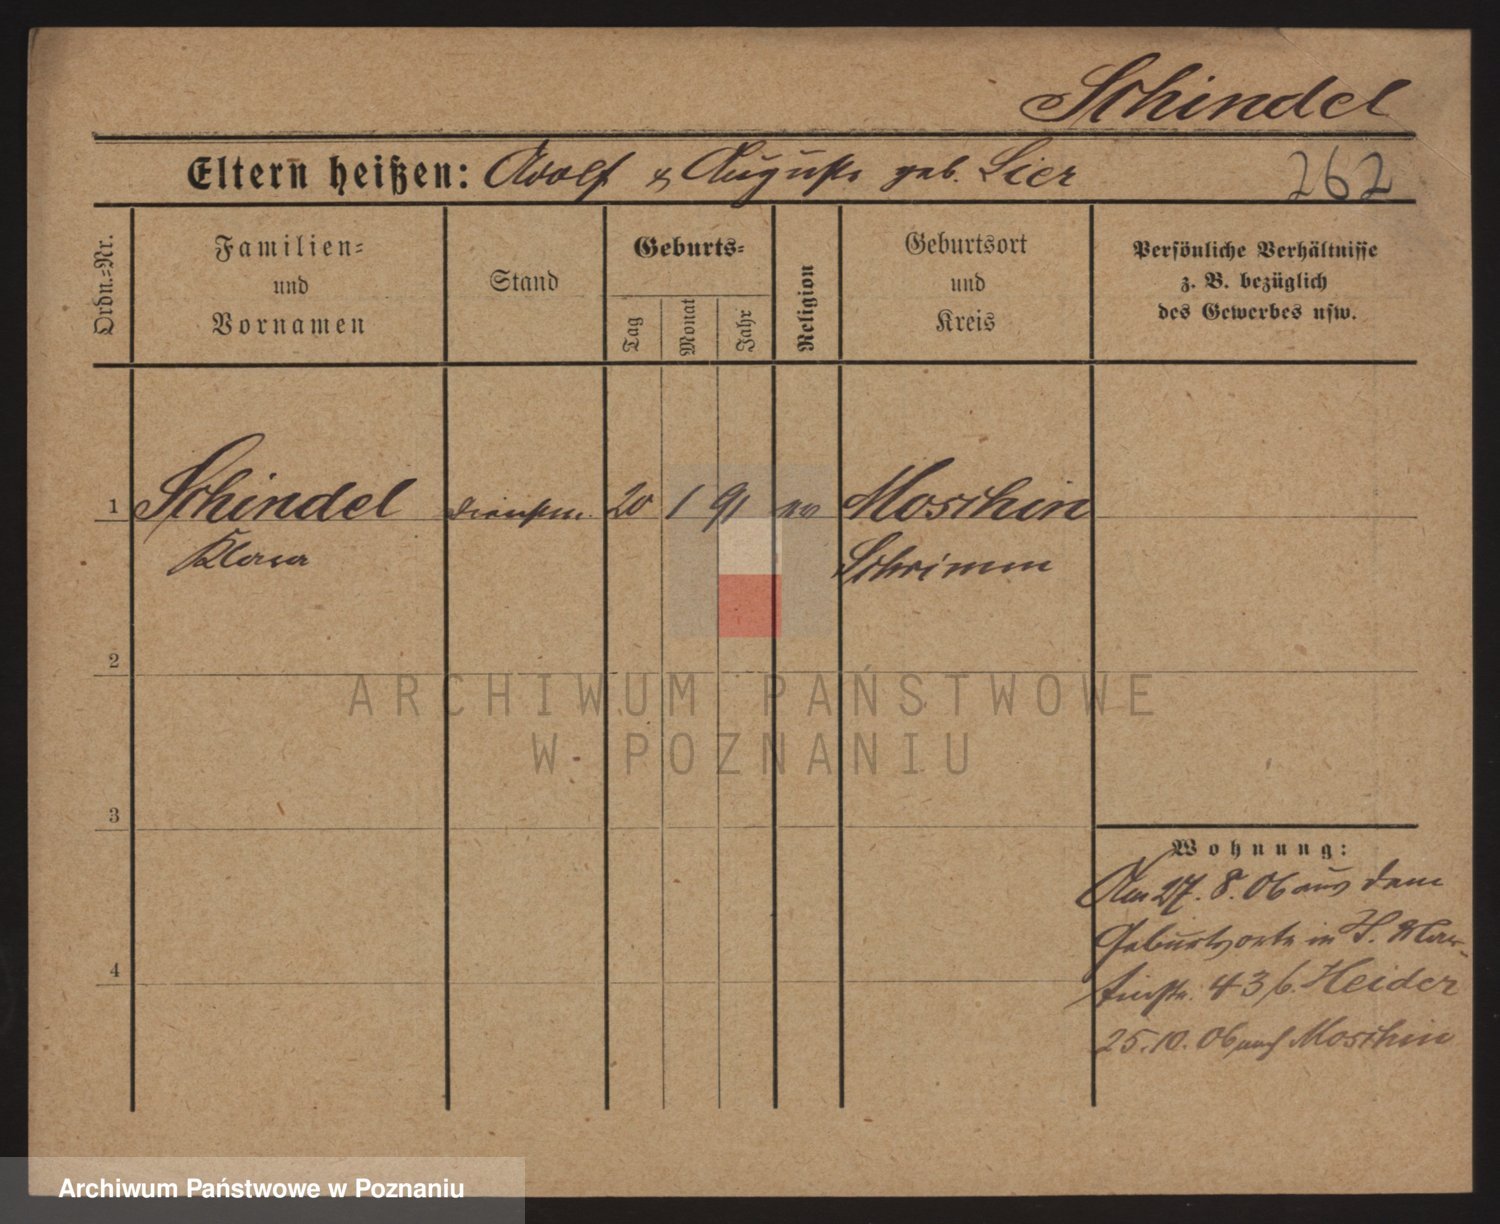 Schindel
Eltern heißen: Adolf & Auguste geb. Lier
262
Ordn.=Nr.
Familien=
und
Vornamen
Stand
Geburts=
Tag
Monat
Jahr
Religion
Geburtsort
und
Kreis
Persönliche Verhältnisse
z. B. bezüglich
des Gewerbes usw.
1 Schindel Dienstm. 20 1 91 ev Moschin
Klara Schrimm
2
ARCHIWUM PAŃSTWOWE
W POZNANIU
3
Wohnung:
Am 27. 8. 06 aus dem
Geburtsorte in
43 b. Heider
4
25. 10. 06 nach Moschin
Archiwum Państwowe w Poznaniu